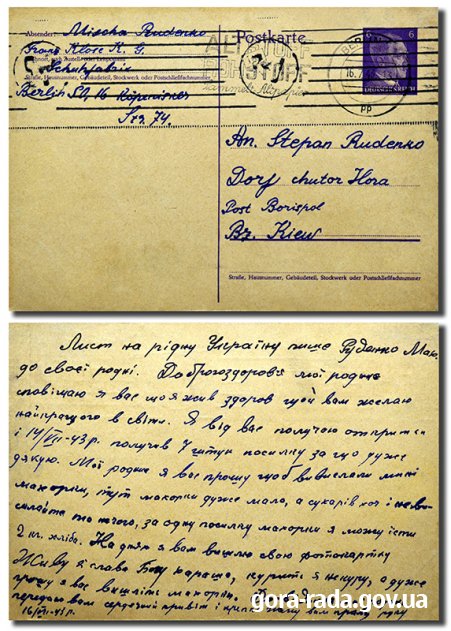 Absender: Mischa Rudenko
Franz Klose K. G.
Schuhfabrik
Straße, Hausnummer, Gebäudeteil, Stockwerk oder Postschließfachnummer
Berlin SO, 16 Köpenicker
Str. 74.
Postkarte
ALTSTOFF
6 6
DEUTSCHES REICH
An. Stepan Rudenko
Dorf chutor Hora
Post Borispol
Bz. Kiew
Straße, Hausnummer, Gebäudeteil, Stockwerk oder Postschließfachnummer
Лист на рідну Україну пише Руденко Мих.
до своєї родні. Доброго здоровя мої рідні
сповіщаю я вас що я жив здоров чого й вам желаю
найкращого в світи. Я від вас получаю открытки
і 14/VII-43 р. получив посилку за що дуже
дякую. Мої родні я вас прошу щоб ви вислали мині
махорки, тут махорки дуже мало, а сухарів хоч і не
силайте то нічого, за одну посилку махорки я можу їсти
2 кг. хліба. На днях я вам вишлю свою фотокартку
Живу я слава Богу хараша, курить я некурю, а дуже
прошу я вас вишліть махорки.
передаю вам сердечний привіт і руку
16/VII-43 р.
gora-rada.gov.ua